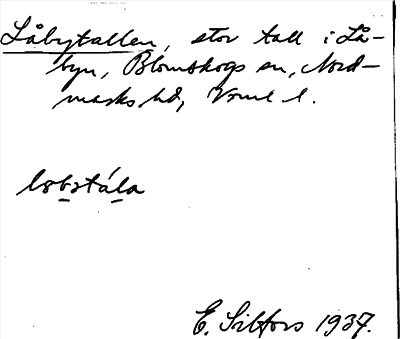 Låbytallen, stor tall i Lå-
byn, Blomskogs sn, Nord-
marks hd, Vrml l.
E. Silfors 1937.